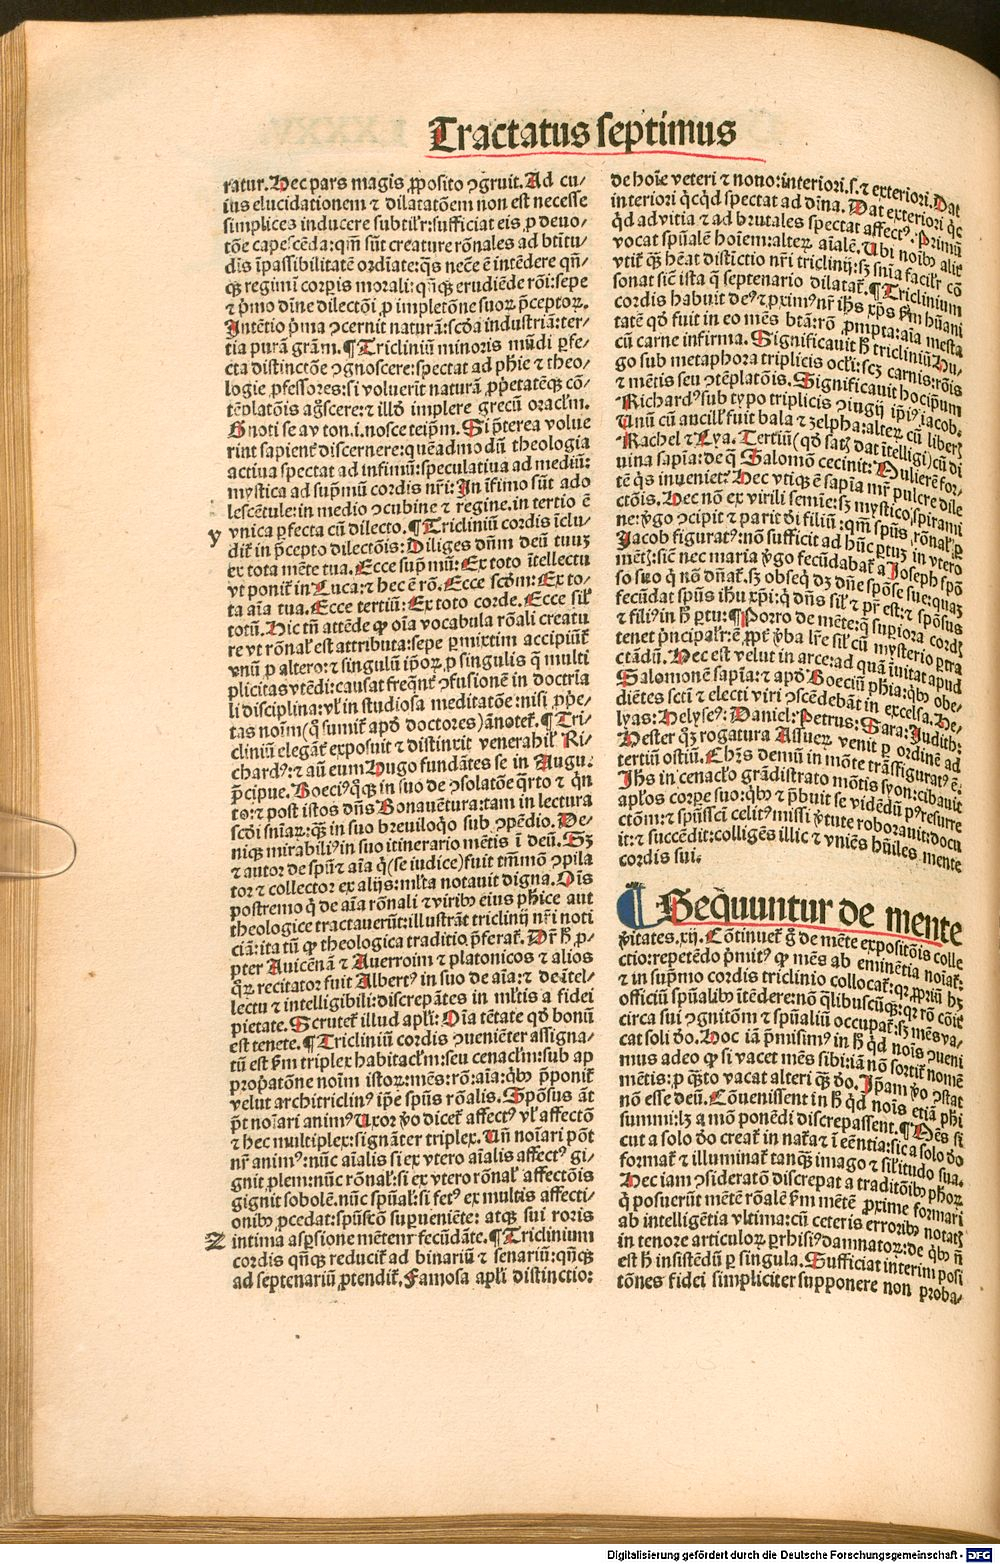 Tractatus septimus
ratur. Hec pars magis ꝓposito ↄgruit. Ad cu/
ius elucidationem ⁊ dilatatõem non est necesse
simplices inducere subtilr̃: sufficiat eis ꝑ deuo/
tõe capescẽda: qm̃ sũt creature rõnales ad btĩtu/
dĩs ĩpassibilitatẽ ordĩate: q̃s necẽ ẽ intẽdere qñ/
qꝫ regimĩ corꝑis morali: qñqꝫ erudiẽde rõi: sepe
⁊ pͥmo dĩne dilectõĩ ꝓ impletõne suoꝝ p̃ceptoꝝ.
Intẽtio pͥma ↄcernit naturã: scõa industriã: ter/
tia purã gr̃am. ¶ Tricliniũ minoris mũdi ꝑfe/
cta distinctõe ↄgnoscere: spectat ad ph̃ie ⁊ theo/
logie ꝓfessores: si voluerit naturã ꝓpͥetatẽqꝫ cõ/
tẽplatõis ag̃scere: ⁊ illð implere grecũ oracl̃m.
Gnoti se av ton .i. nosce teip̃m. Si p̃terea volue
rint sapienẽ discernere: quẽadmodũ theologia
actiua spectat ad infimũ: speculatiua ad mediũ:
mystica ad sup̃mũ cordis nr̃i: In ĩfimo sũt ado
lescẽtule: in medio ↄcubine ⁊ regine. in tertio ẽ
y vnica ꝑfecta cũ dilecto. ¶ Tricliniũ cordis ĩclu/
diẽ in p̃cepto dilectõis: Diliges dñm deũ tuuꝫ
ex tota mẽte tua. Ecce sup̃mũ: Ex toto ĩtellectu
vt poniẽ in Luca: ⁊ hec ẽ rõ. Ecce scõm: Ex to/
ta aĩa tua. Ecce tertiũ: Ex toto corde. Ecce sil̃
totũ. Hic tñ attẽde ꝙ oĩa vocabula rõali creatu
re vt rõnal̃ est attributa: sepe ꝑmixtim accipiũẽ
vnũ ꝓ altero: ⁊ singulũ ip̃oꝝ ꝓ singulis q̃ multi
plicitas vtẽdi: causat freq̃nẽ ↄfusionẽ in doctria
li disciplina: vl̃ in studiosa meditatõe: nisi ꝓpͥe/
tas noĩm (q̃ sumiẽ apð doctores) ãnoteẽ. ¶ Tri/
cliniũ elegãẽ exposuit ⁊ distinxit venerabil̃ Ri/
chardꝰ: ⁊ añ eum Hugo fundãtes se in Augu.
p̃cipue. Boeciꝰ q̃qꝫ in suo de ↄsolatõe q̃rto ⁊ q̃n
to: ⁊ post istos dñs Bonauẽtura: tam in lectura
scõi snĩaꝝ: q̃ꝫ in suo breuiloq̃o sub ↄpẽdio. De/
niqꝫ mirabiliꝰ in suo itinerario mẽtis ĩ deũ. Sꝫ
⁊ autor de spũ ⁊ aĩa q̃ (se iudice) fuit tm̃mõ ↄpila
tor ⁊ collector ex alijs: ml̃ta notauit digna. Oĩs
postremo q̃ de aĩa rõnali ⁊ viribꝰ eius ph̃ice aut
theologice tractauerũt: illustrãt triclinij nr̃i noti
ciã: ita tñ ꝙ theologica traditio p̃feraẽ. Dr̃ h̃ ꝓ/
pter Auicẽnã ⁊ Auerroim ⁊ platonicos ⁊ alios
qͦꝝ recitator fuit Albertꝰ in suo de aĩa: ⁊ de ĩtel/
lectu ⁊ intelligibili: discrepãtes in ml̃tis a fidei
pietate. Scruteẽ illud apl̃i: Oĩa tẽtate qð bonũ
est tenete. ¶ Tricliniũ cordis ↄueniẽter assigna/
tũ est ẽm triplex habitacl̃m: seu cenacl̃m: sub ap
propͥatõne noĩm istoꝝ: mẽs: rõ: aĩa: qͥbꝰ p̃poniẽ
velut architriclinꝰ ip̃e spũs rõalis. Spõsus ãt
p̃t noĩari animꝰ: Uxoꝝ ꝟo diceẽ affectꝰ vl̃ affectõ
⁊ hec multiplex: signãter triplex. Uñ noĩari põt
nr̃ animꝰ: nũc aĩalis si ex vtero aĩalis affectꝰ gi/
gnit ꝓlem: nũc rõnal̃: si ex vtero rõnal̃ affectõis
gignit sobolẽ. nũc spũal̃: si fetꝰ ex multis affecti/
onibꝰ ꝓcedat: spũscõ suꝑueniẽte: atqꝫ sui roris
Z intima aspͥsione mẽtem fecũdãte. ¶ Triclinium
cordis qñqꝫ reduciẽ ad binariũ ⁊ senariũ: qñqꝫ
ad septenariũ ꝓtendiẽ. Famosa apl̃i distinctio:
de hoĩe veteri ⁊ nouo: interiori .s. ⁊ exteriori. Dat
interiori qͥcqͥd spectat ad dĩna. Dat exteriori qͥc
qͥd ad vitia ⁊ ad brutales spectat affectꝰ. Primũ
vocat spũalẽ hoĩem: alteꝝ aĩalẽ. Ubi noĩbꝰ aliẽ
vtiẽ q̃ꝫ h̃eat distictio nr̃i triclinij: sꝫ snĩa facilr̃ cõ
sonat sicẽ ista q̃ septenario dilataẽ. ¶ Triclinium
cordis habuit deꝰ ⁊ ꝓximꝰ nr̃ ih̃s xp̃s ẽm hũani
tatẽ qð fuit in eo mẽs btã: rõ ꝓmpta: aĩa mesta
cũ carne infirma. Significauit h̃ tricliniũ Hu/
go sub metaphora triplicis ocl̃i: scꝫ carnis: rõis
⁊ mẽtis seu ↄtẽplatõis. Significauit hocip̃um
Richardꝰ sub typo triplicis ↄiugij ip̃iꝰ iacob.
Unũ cũ ancill̃ fuit bala ⁊ zelpha: alteꝝ cũ liberꝭ
Rachel ⁊ Lya. Tertiũ (qð satꝭ dat ĩtelligi) cũ di
uina sapĩa: de q̃ Salomõ cecinit: Mulierẽ for/
tẽ qͥs inueniet: Hec vtiqꝫ ẽ sapĩa mr̃ pulcre dile
ctõis. Hec nõ ex virili semĩe: sꝫ mystico spirami
ne: ꝟgo ↄcipit ⁊ parit ði filiũ: qm̃ spũs rõnal̃ ꝑ
Jacob figuratꝰ: nõ sufficit ad hũc ꝑtuꝫ in vtero
mẽtꝭ: sicẽ nec maria ꝟgo fecũdabaẽ a Joseph spõ
so suo q̃ nõ dñaẽ. sꝫ obseq̃ dꝫ dñe spõse sue: quaꝫ
fecũdat spũs ihũ xp̃i: q̃ dñs sil̃ ⁊ pr̃ est: ⁊ spõsus
⁊ filiꝰ in h̃ ꝑtu: ¶ Porro de mẽte: q̃ suꝑiora cordꝭ
tenet pͥncipalr̃: ẽ ꝓpẽ ꝟba lr̃e sil̃ cũ mysterio ꝑtra
ctãdũ. Hec est velut in arce: ad quã ĩuitat apud
Salomonẽ sapĩa: ⁊ apð Boeciũ ph̃ia: qͥbꝰ obe/
diẽtes scti ⁊ electi viri ↄscẽdebãt in excelsa. He/
lyas: Helyseꝰ: Daniel: Petrus: Sara: Judith:
Hester q̃ꝫ rogatura Assueꝝ venit ꝑ ordinẽ ad
tertiũ ostiũ. Chr̃s demũ in mõte trãsfiguratꝰ ẽ.
Jh̃s in cenacl̃o grãdi strato mõtis syon: cibauit
apl̃os corꝑe suo: qͥbꝰ ⁊ p̃buit se vidẽdũ pꝰ resurre
ctõm: ⁊ spũssc̃i celitꝰ missi ꝟtute roborauit: docu
it: ⁊ succẽdit: colligẽs illic ⁊ vniẽs hũiles mente
cordis sui.
¶ Sequuntur de mente
ꝟitates .xij. Cõtinueẽ g̃ de mẽte expositõis colle
ctio: repetẽdo pͥmitꝰ ꝙ mẽs ab eminẽtia noĩaẽ:
⁊ in sup̃mo cordis triclinio collocaẽ: qꝛ ꝓpͥiũ hꝫ
officiũ spũalibꝰ ĩtẽdere: nõ q̃libuscũqꝫ: qꝛ rõ cõiẽ
circa sui ↄgnitõm ⁊ spũaliũ occupaẽ: sꝫ mẽs va/
cat soli ðo. Hoc iã p̃misimꝰ in h̃ qͥd noĩs ↄueni
mus adeo ꝙ si vacet mẽs sibi: iã nõ sortiẽ nomẽ
mẽtis: ꝑ q̃ꝫto vacat alteri q̃ꝫ ðo. Ip̃am ꝟo ↄstat
nõ esse deũ. Cõuenissent in h̃ qͥd noĩs etiã ph̃i
summi: lꝫ a mõ ponẽdi discrepassent. ¶ Mẽs si
cut a solo ðo creaẽ in naẽa ⁊ ĩ eẽntia: sic a solo ðo
formaẽ ⁊ illuminaẽ tanqꝫ imago ⁊ sil̃itudo sua.
Hec iam ↄsideratõ discrepat a traditõibꝰ ph̃oꝝ
q̃ posuerũt mẽtẽ rõalẽ ẽm mẽtẽ ꝓxime formari
ab intelligẽtia vltima: cũ ceteris erroribꝰ notatꝭ
in tenore articuloꝝ ꝑrhisiꝰ damnatoꝝ: de qͥbꝰ ñ
est h̃ insistẽdũ ꝑ singula. Sufficiat interim posi
tõnes fidei simpliciter supponere non proba/
Digitalisierung gefördert durch die Deutsche Forschungsgemeinschaft - DFG